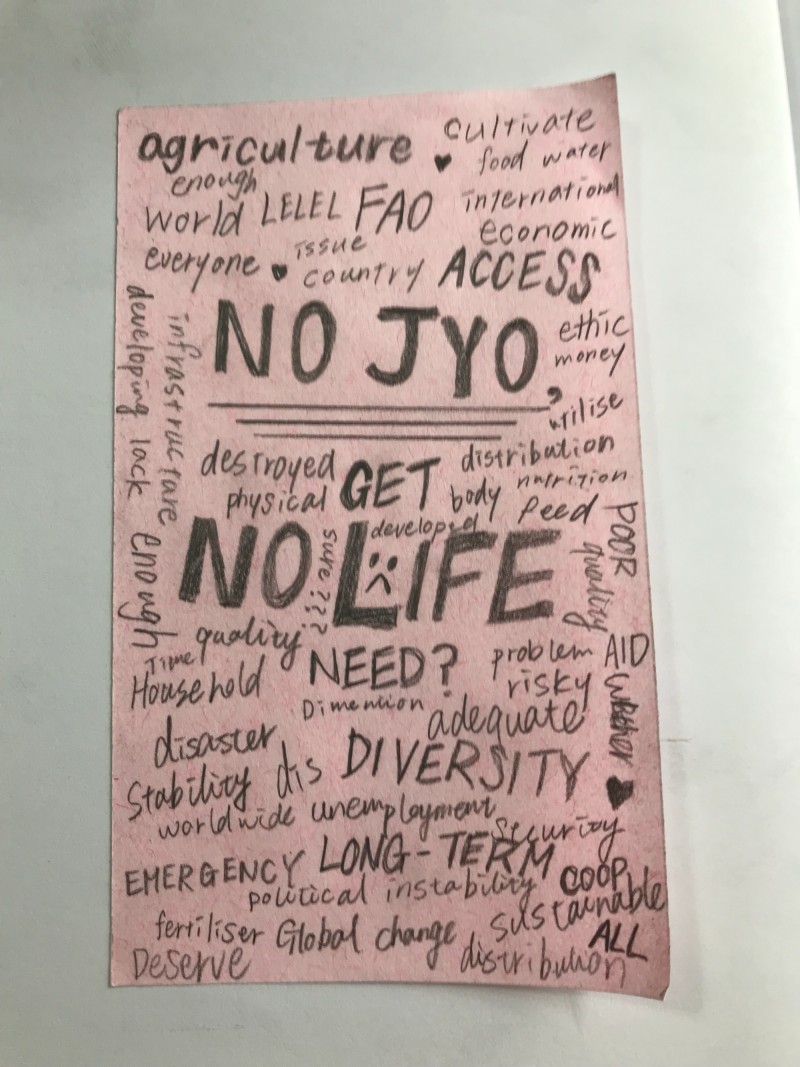 agriculture
cultivate
♥ food water
enough
world LELEL FAO
international
economic
everyone ♥ issue
country ACCESS
developing lack
infrastructure
NO JYO,
ethic
money
utilise
destroyed
physical
GET
distribution
body nutrition
feed
developed
NO LIFE
sure???
POOR
quality
enough
quality
Time
Household
NEED?
problem AID
risky
Dimention
adequate
disaster
Stability dis DIVERSITY
♥
worldwide unemployment
security
EMERGENCY LONG-TERM
COOP
political instability
sustainable
fertiliser Global change
ALL
Deserve
distribution